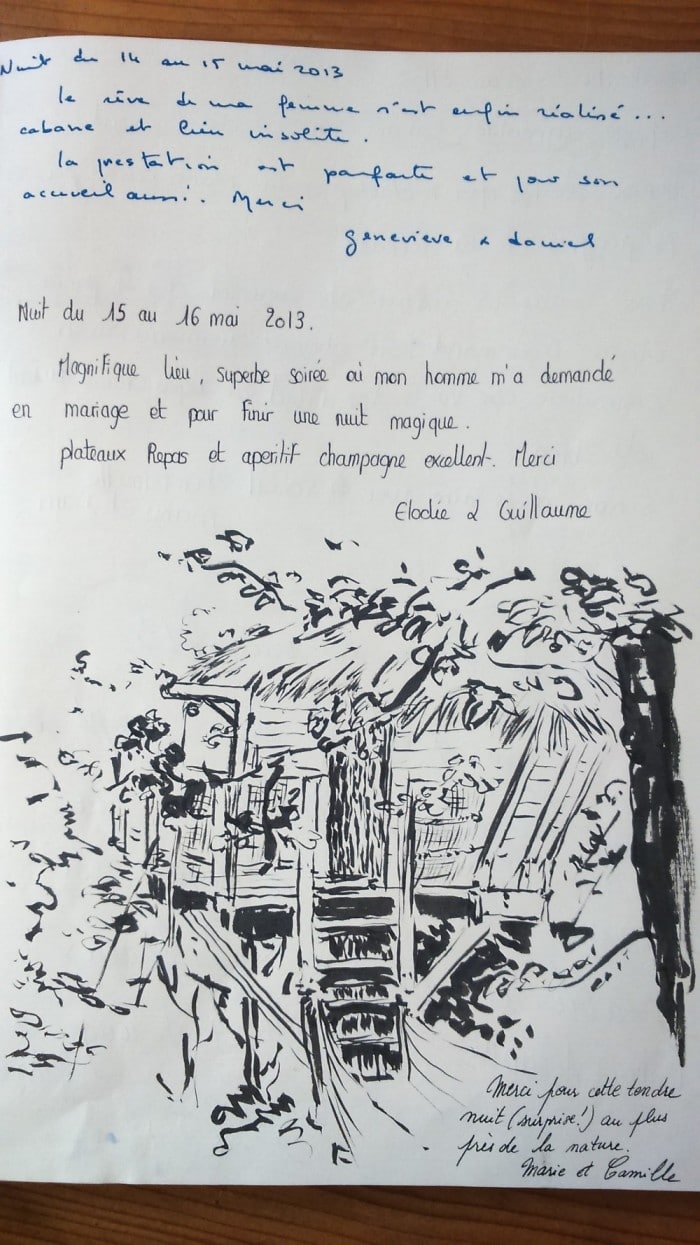 Nuit du 14 au 15 mai 2013
le rêve de ma femme s'est enfin réalisé...
cabane et lieu insolite.
la prestation est parfaite et pour son
accueil aussi. Merci
geneviève & daniel
Nuit du 15 au 16 mai 2013.
Magnifique lieu, superbe soirée où mon homme m'a demandé
en mariage et pour finir une nuit magique.
plateaux Repas et aperitif champagne excellent. Merci
Elodie & Guillaume
Merci pour cette tendre
nuit (surprise!) au plus
près de la nature.
Marie et Camille